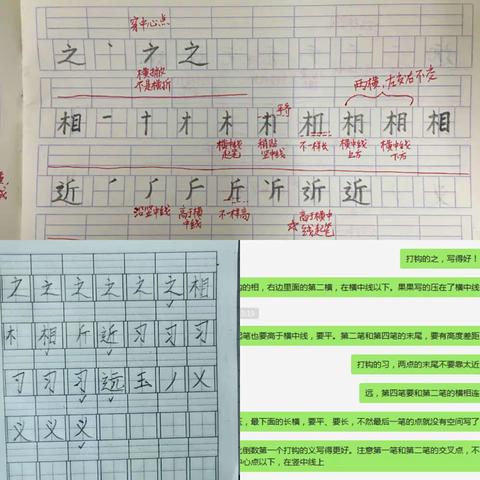 穿中心点
之 丶 ㇇ 之
横撇
不是横折
两横,左安右不定
相 一 十 才 木 朴 机 相 相 相
平
横中线
起笔
稍贴
竖中线
不一样长
横中线
上方
横中线
下方
近 ノ 厂 斤 斤 近 近 近
沿竖中线
高于横
中线
不一样高
高于横中
线起笔
之 之 之 之 之 之 相
木 相 斤 近 习 习 习
习 习 习 远 玉 丿 义
义 义 义
打钩的之,写得好!
的相,右边里面的第二横,在横中线以下。果果写的压在了横中线
起笔也要高于横中线,要平。第二笔和第四笔的末尾,要有高度差距
打钩的习,两点的末尾不要靠太近
远,第四笔要和第二笔的横相连
,最下面的长横,要平、要长,不然最后一笔的点就没有空间写了
倒数第一个打钩的义写得更好。注意第一笔和第二笔的交叉点,不
中心点以下,在竖中线上